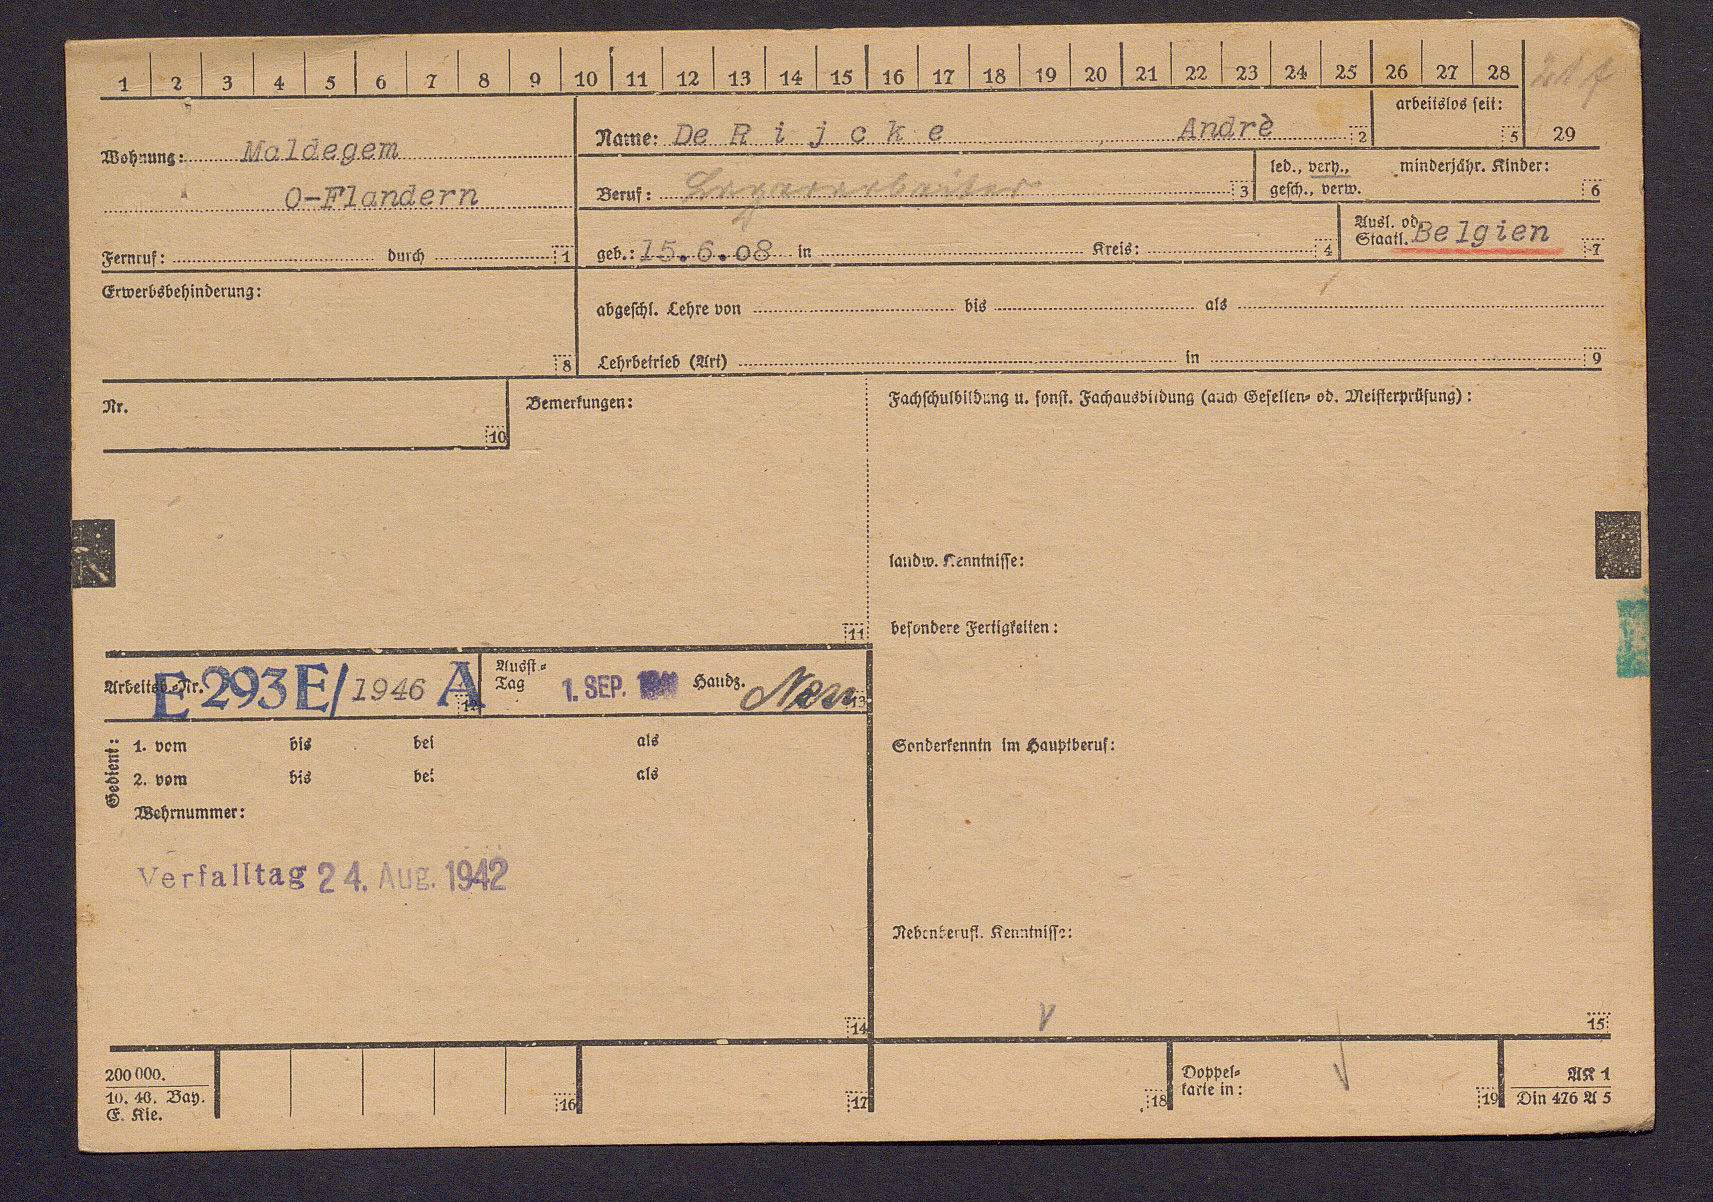 1 2 3 4 5 6 7 8 9 10 11 12 13 14 15 16 17 18 19 20 21 22 23 24 25 26 27 28
arbeitslos seit:
5 29
Wohnung: Maldegem
O-Flandern
Fernruf: durch 1
Name: De R i j c k e Andrè 2
Beruf: Lagerarbeiter 3
led., verh., minderjähr. Kinder:
gesch., verw. 6
geb.: 15.6.08 in Kreis: 4
Ausl. od.
Staatl. Belgien 7
Erwerbsbehinderung:
8
abgeschl. Lehre von bis als
Lehrbetrieb (Art) in 9
Nr.
10
Bemerkungen:
11
Fachschulbildung u. sonst. Fachausbildung (auch Gesellen- od. Meisterprüfung):
landw. Kenntnisse:
besondere Fertigkeiten:
Arbeitsb.-Nr. E 293 E/ 1946 A 12
Ausst.-
Tag 1. SEP. Handz. 13
Gedient:
1. vom bis bei als
2. vom bis bei als
Wehrnummer:
Verfalltag 24. Aug. 1942
14
Sonderkenntn im Hauptberuf:
Nebenberufl. Kenntnisse:
15
200 000.
10. 40. Bay.
E. Kie.
16 17 18
Doppel-
karte in: 19
AK 1
Din 476 A 5